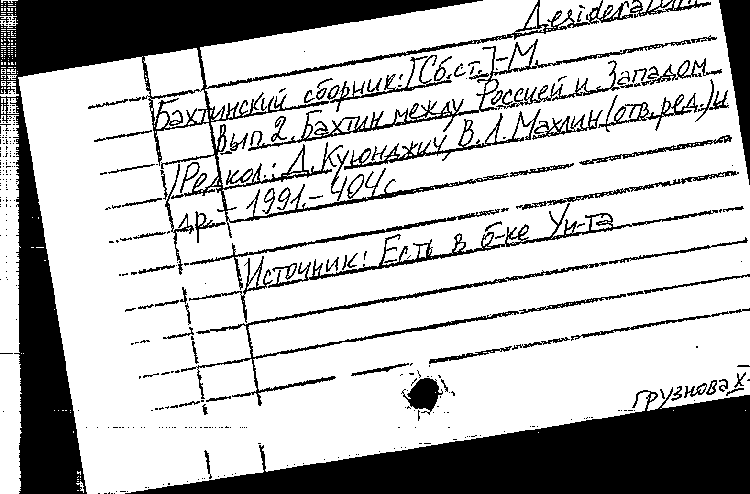 Desiderata
Бахтинский сборник: [Сб.ст.]-М.
Вып 2. Бахтин между Россией и Западом
/Редкол.: Д. Куюнджич, В.Л. Махлин (отв.ред.) и
др. – 1991.– 404с
Источник: Есть в б-ке Ун-та
Грузнова X-